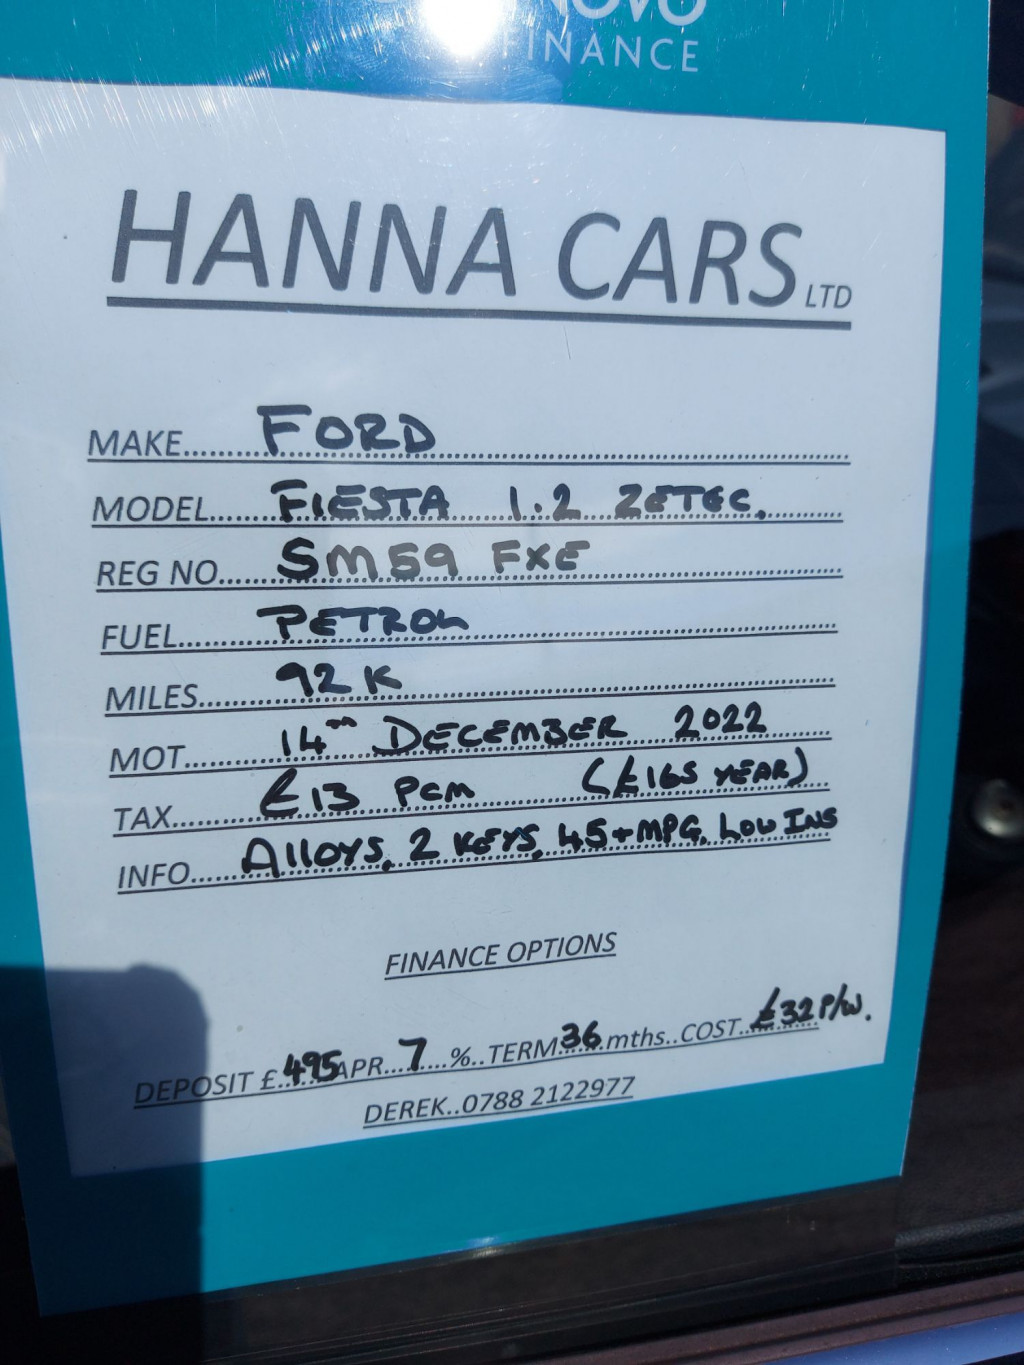 NOVO
FINANCE
HANNA CARS LTD
MAKE......FORD
MODEL......FIESTA 1.2 ZETEC.
REG NO......SM59 FXE
FUEL......PETROL
MILES......92K
MOT......14TH DECEMBER 2022
TAX......£13 PCM (£165 YEAR)
INFO......ALLOYS, 2 KEYS, 45+MPG, LOW INS
FINANCE OPTIONS
DEPOSIT £..495 APR...7...%..TERM 36 mths..COST...£32 P/W.
DEREK..0788 2122977